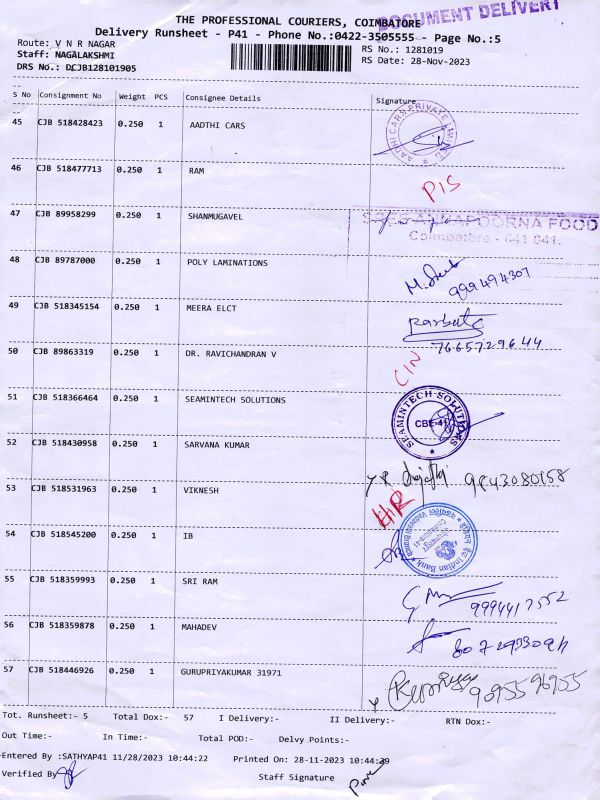 DOCUMENT DELIVERY
THE PROFESSIONAL COURIERS, COIMBATORE
Delivery Runsheet - P41 - Phone No.:0422-3505555 - Page No.:5
Route: V N R NAGAR
RS No.: 1281019
Staff: NAGALAKSHMI
RS Date: 28-Nov-2023
DRS No.: DCJB128101905
S No Consignment No Weight PCS Consignee Details Signature
45 CJB 518428423 0.250 1 AADTHI CARS
AADHI CARS PRIVATE LIMITED
46 CJB 518477713 0.250 1 RAM
PIS
47 CJB 89958299 0.250 1 SHANMUGAVEL
SREE ANNAPOORNA FOOD
Coimbatore - 641 041.
48 CJB 89787000 0.250 1 POLY LAMINATIONS
999494307
49 CJB 518345154 0.250 1 MEERA ELCT
7665729644
50 CJB 89863319 0.250 1 DR. RAVICHANDRAN V
CIN
51 CJB 518366464 0.250 1 SEAMINTECH SOLUTIONS
SEAMINTECH SOLUTIONS
CBE-41
52 CJB 518430958 0.250 1 SARVANA KUMAR
9843080158
53 CJB 518531963 0.250 1 VIKNESH
HR
54 CJB 518545200 0.250 1 IB
Indian Bank
55 CJB 518359993 0.250 1 SRI RAM
9994417552
56 CJB 518359878 0.250 1 MAHADEV
57 CJB 518446926 0.250 1 GURUPRIYAKUMAR 31971
Tot. Runsheet:- 5 Total Dox:- 57 I Delivery:- II Delivery:- RTN Dox:-
Out Time:- In Time:- Total POD:- Delvy Points:-
Entered By :SATHYAP41 11/28/2023 10:44:22 Printed On: 28-11-2023 10:44:29
Verified By
Staff Signature